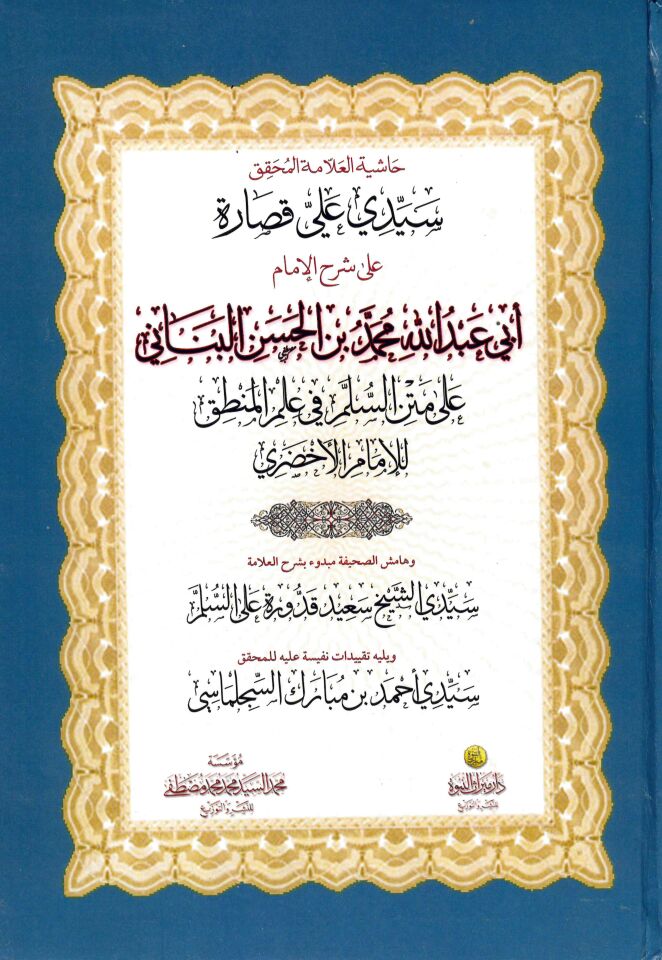 حَاشية العَلاّمة المُحَقِق
سَيِّدِي عَلِيّ قصَارة
على شرح الإمام
أبي عَبْدُ اللهِ مُحَمَّدُ بن الحَسَن البَنَاني
عَلى مَتِن السُّلَّم في عِلمِ المَنطِق
للإمَامِ الأخضَري
وهامش الصحيفة مبدوء بشرح العلامة
سَيِّدي الشَّيخ سَعِيد قَدُّورة عَلى السُّلَّم
ويليه تقييدات نفيسة عليه للمحقق
سَيِّدي أحمد بن مُبارَك السِّجلماسِي
مُؤَسَّسَة
محمد السيد محمد محمد مصطفى
للنشر والتوزيع
دار ميراث النبوة
للنشر والتوزيع